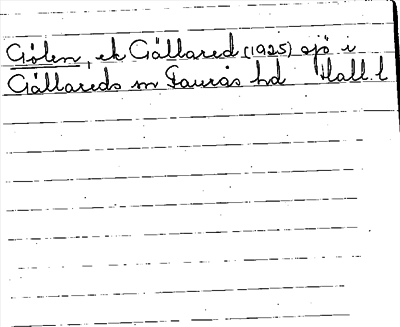 Gölen, ek Gällared (1925) sjö i
Gällareds sn Faurås hd Hall. l